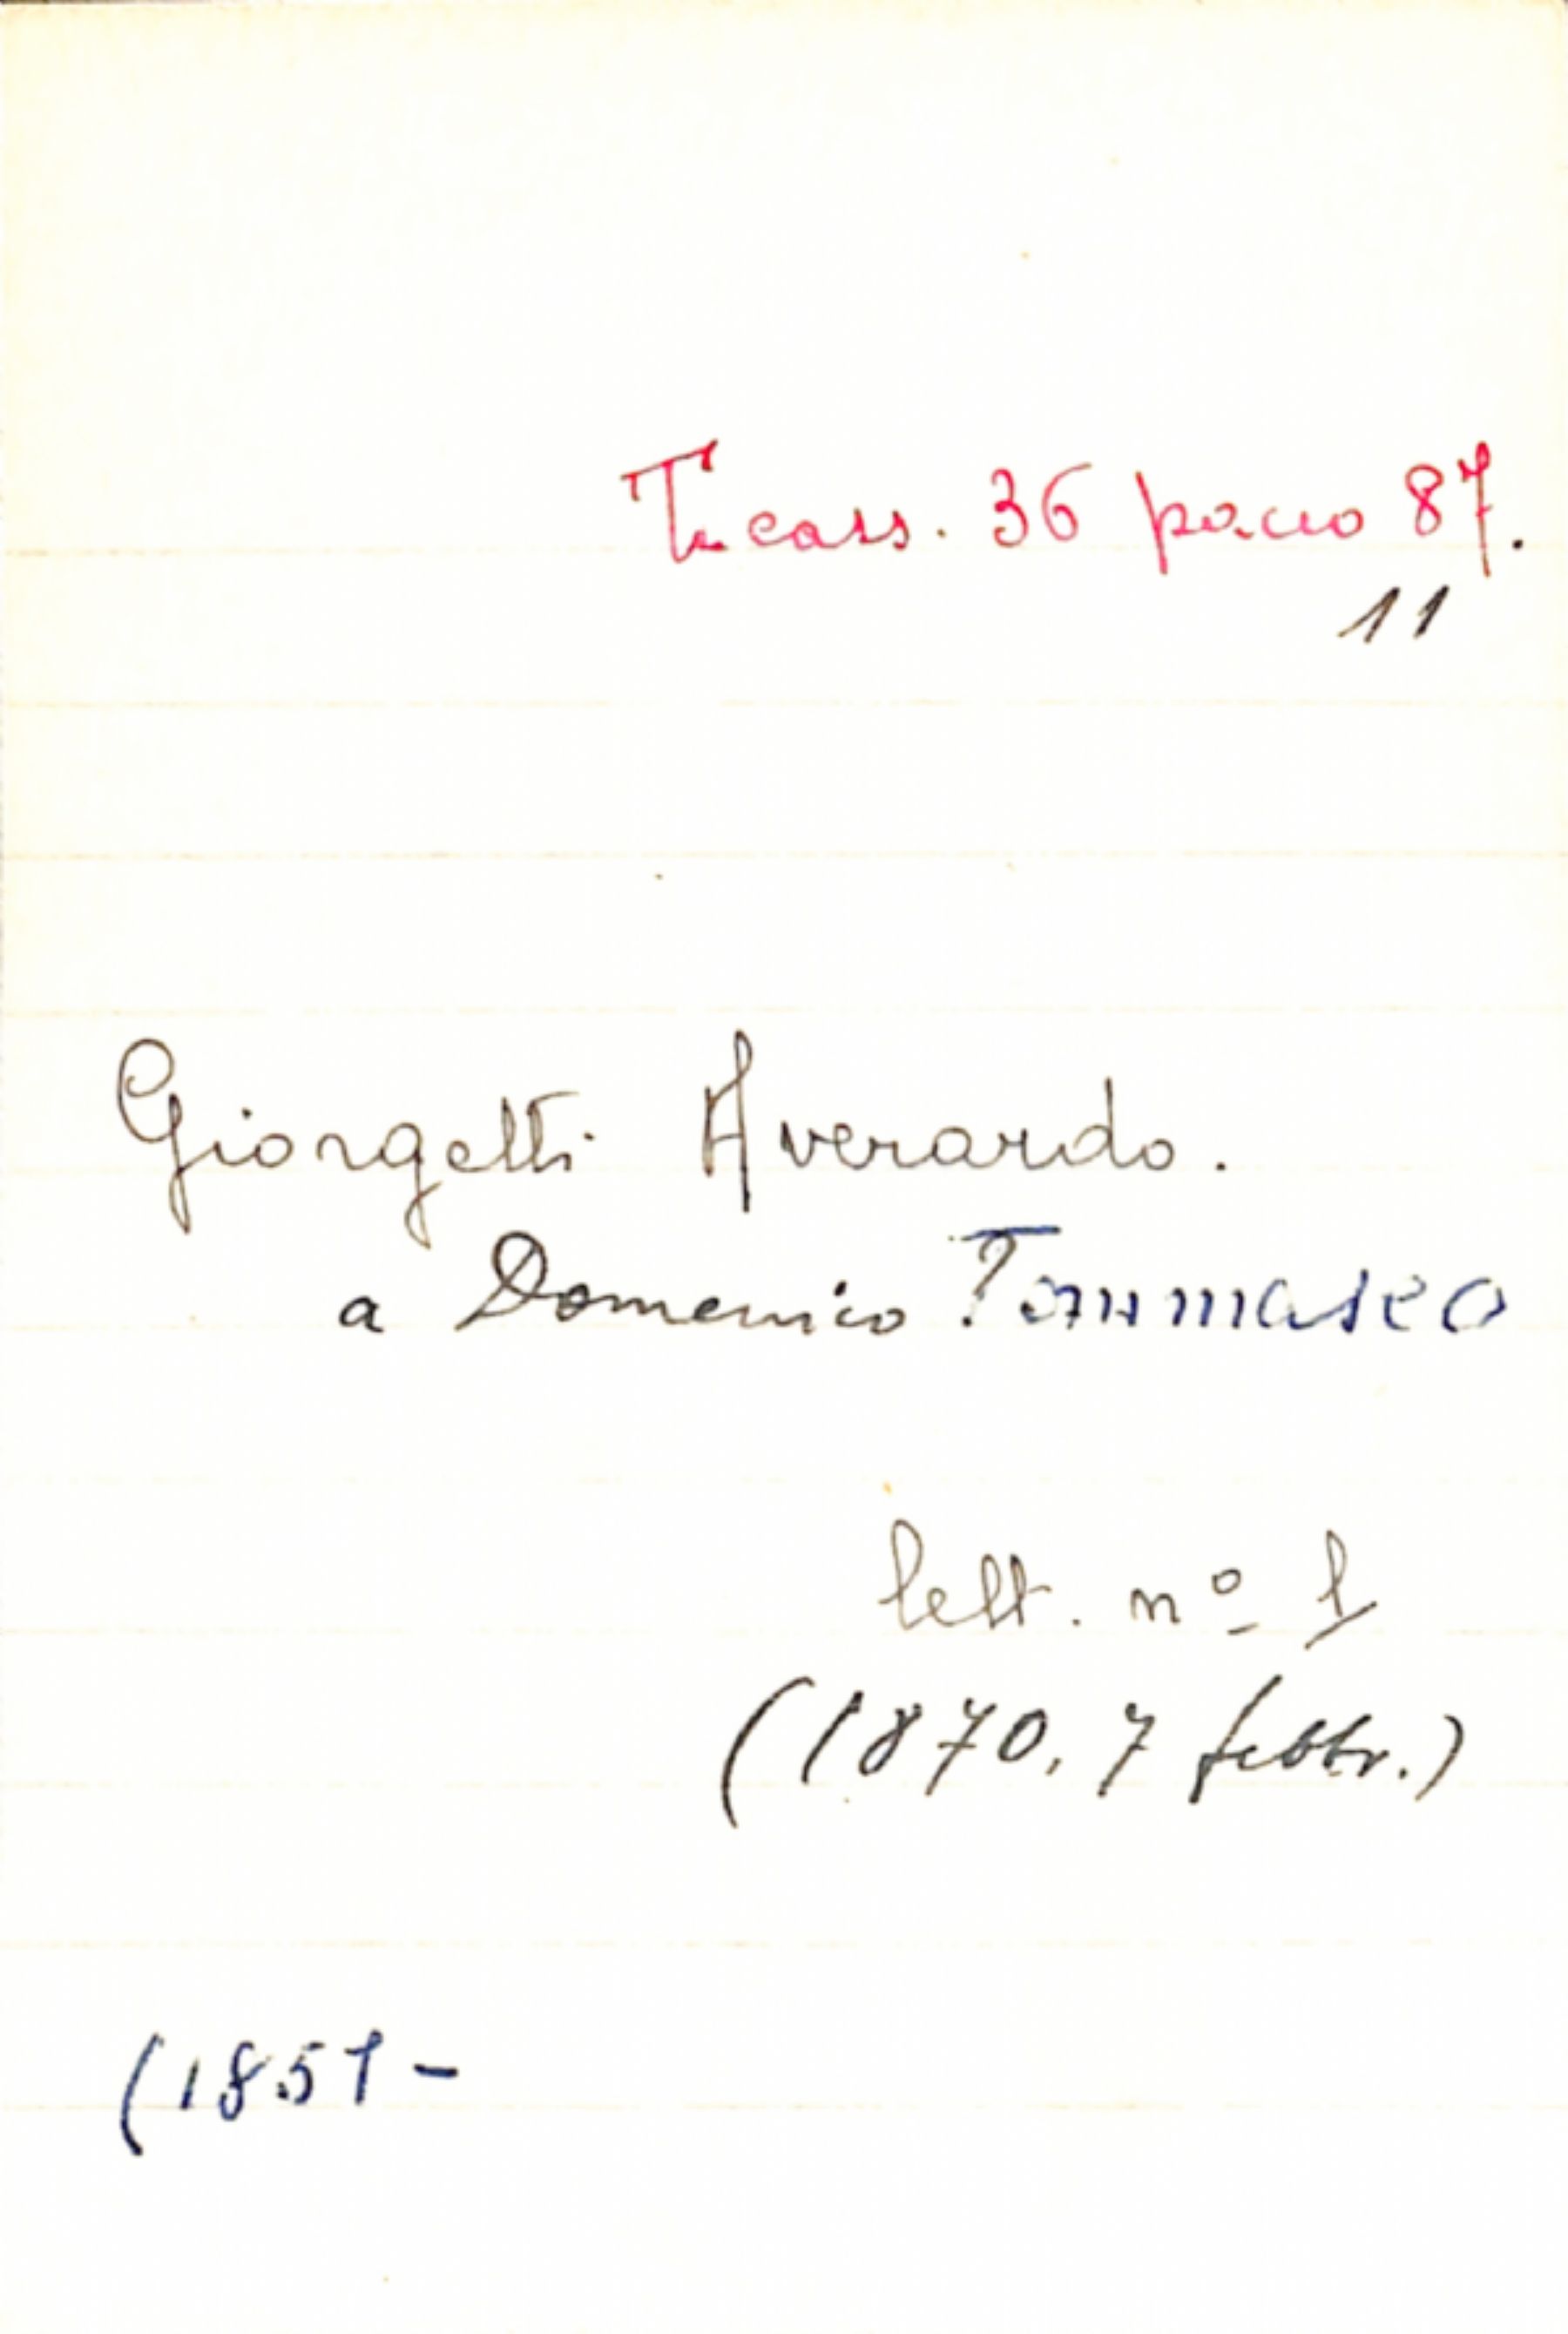 Tu cass. 36 pacco 87.
11
Giorgetti Averardo.
a Domenico Tommaseo
lett. nº 1
(1870, 7 febbr.)
(1851 -